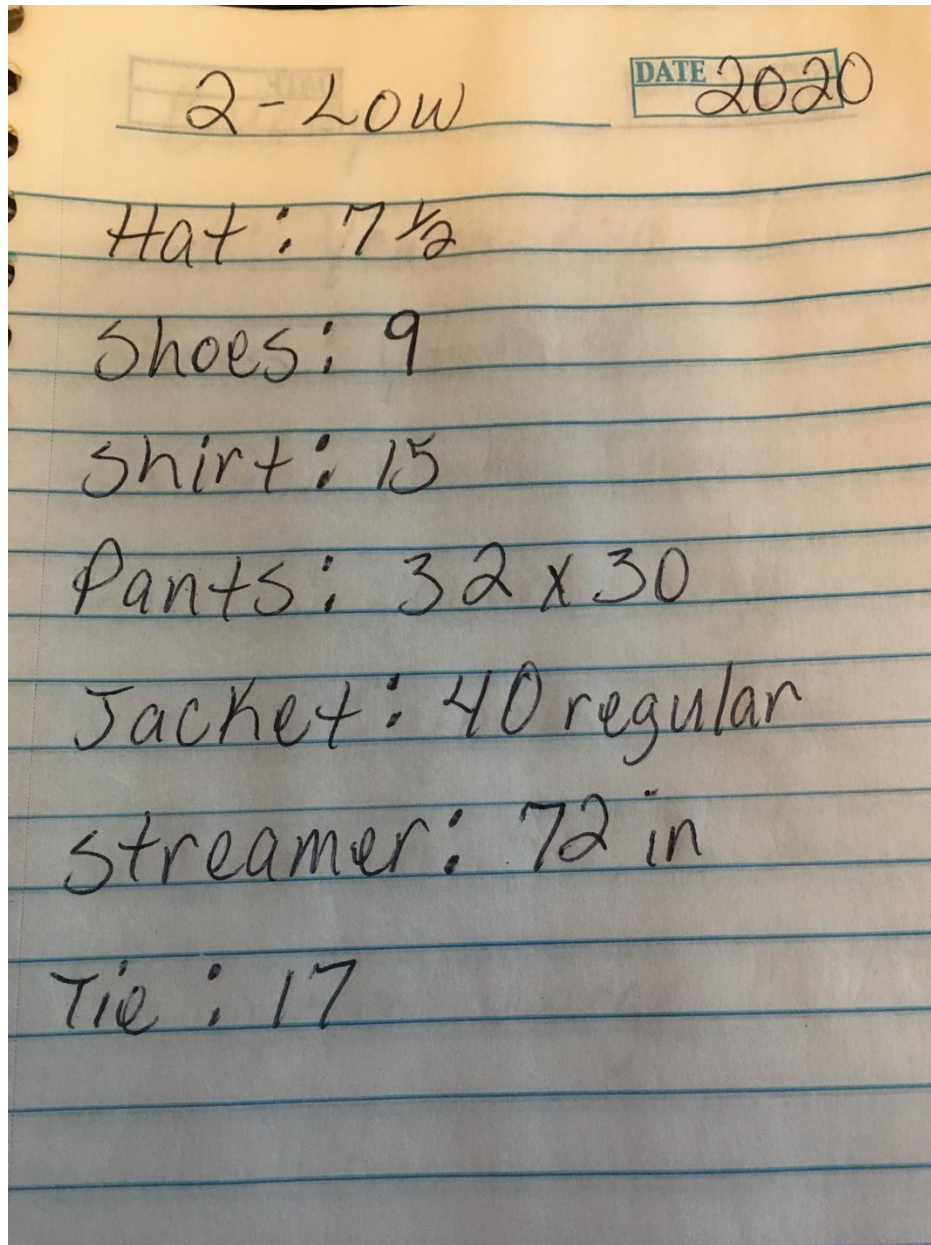 2-Low
DATE 2020
Hat: 7 1/2
Shoes: 9
Shirt: 15
Pants: 32 x 30
Jacket: 40 regular
Streamer: 72 in
Tie: 17